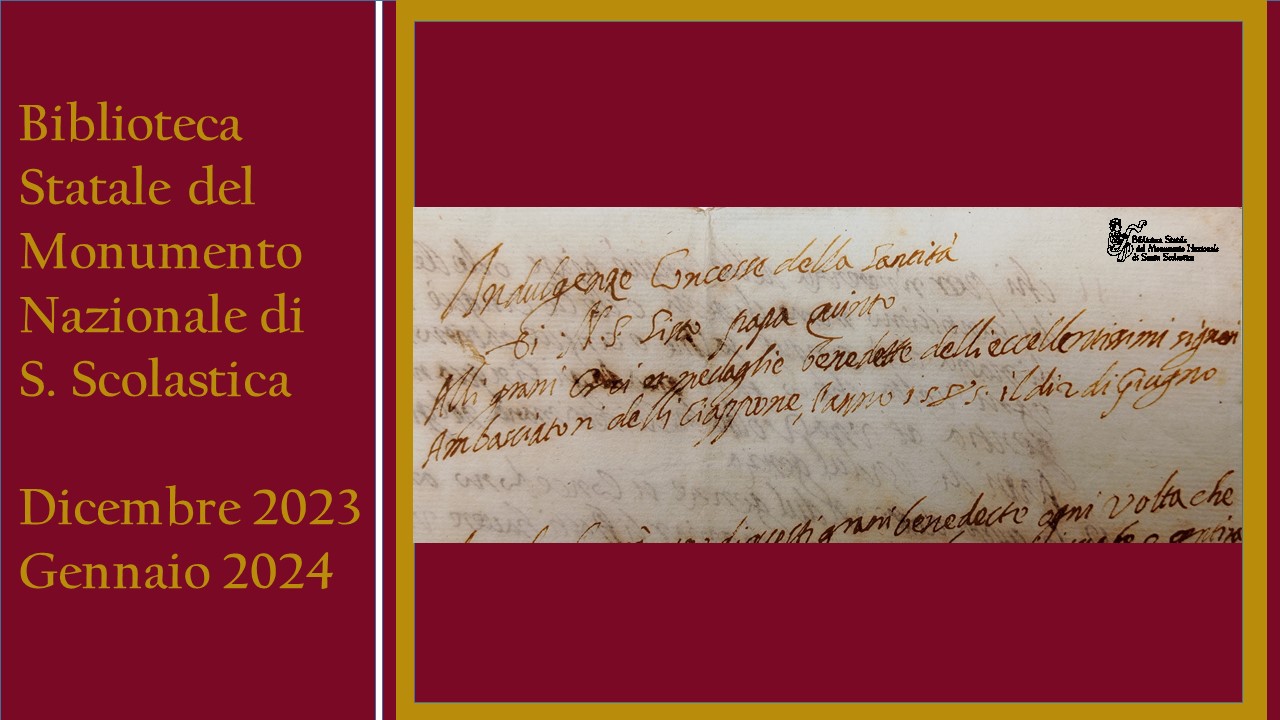 Biblioteca
Statale del
Monumento
Nazionale di
S. Scolastica
Dicembre 2023
Gennaio 2024
Biblioteca Statale
del Monumento Nazionale
di Santa Scolastica
Indulgenze Concesse della Santità
Di N. S. Sisto papa quinto
Alli grani Croci et medaglie benedette delli eccellentissimi signori
Ambasciatori delli Giappone, l'anno 1585. il di 2 di Giugno
grani benedecte ogni volta che